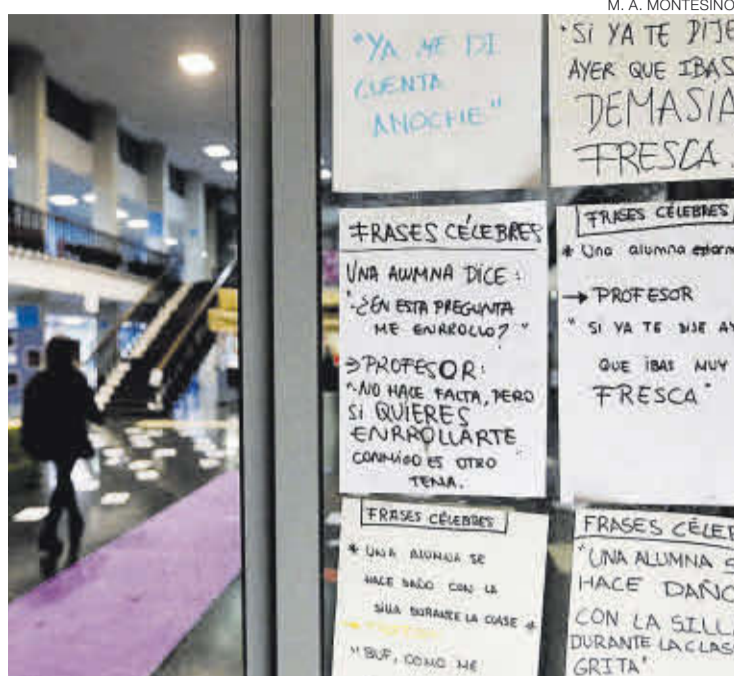 M. A. MONTESINO
"YA ME DI
CUENTA
ANOCHE"
"SI YA TE DIJE
AYER QUE IBAS
DEMASIA
FRESCA.
FRASES CÉLEBRES
UNA ALUMNA DICE:
"-¿EN ESTA PREGUNTA
ME ENRROLLO?"
→PROFESOR:
"-NO HACE FALTA, PERO
SI QUIERES
ENRROLLARTE
CONMIGO ES OTRO
TEMA.
FRASES CÉLEBRES
* Una alumna estorn
→ PROFESOR
" SI YA TE DIJE AY
QUE IBAS MUY
FRESCA"
FRASES CÉLEBRES
* UNA ALUMNA SE
HACE DAÑO CON LA
SILLA DURANTE LA CLASE *
"BUF, COMO ME
FRASES CÉLEB
"UNA ALUMNA S
HACE DAÑO
CON LA SILLA
DURANTE LA CLAS
GRITA"